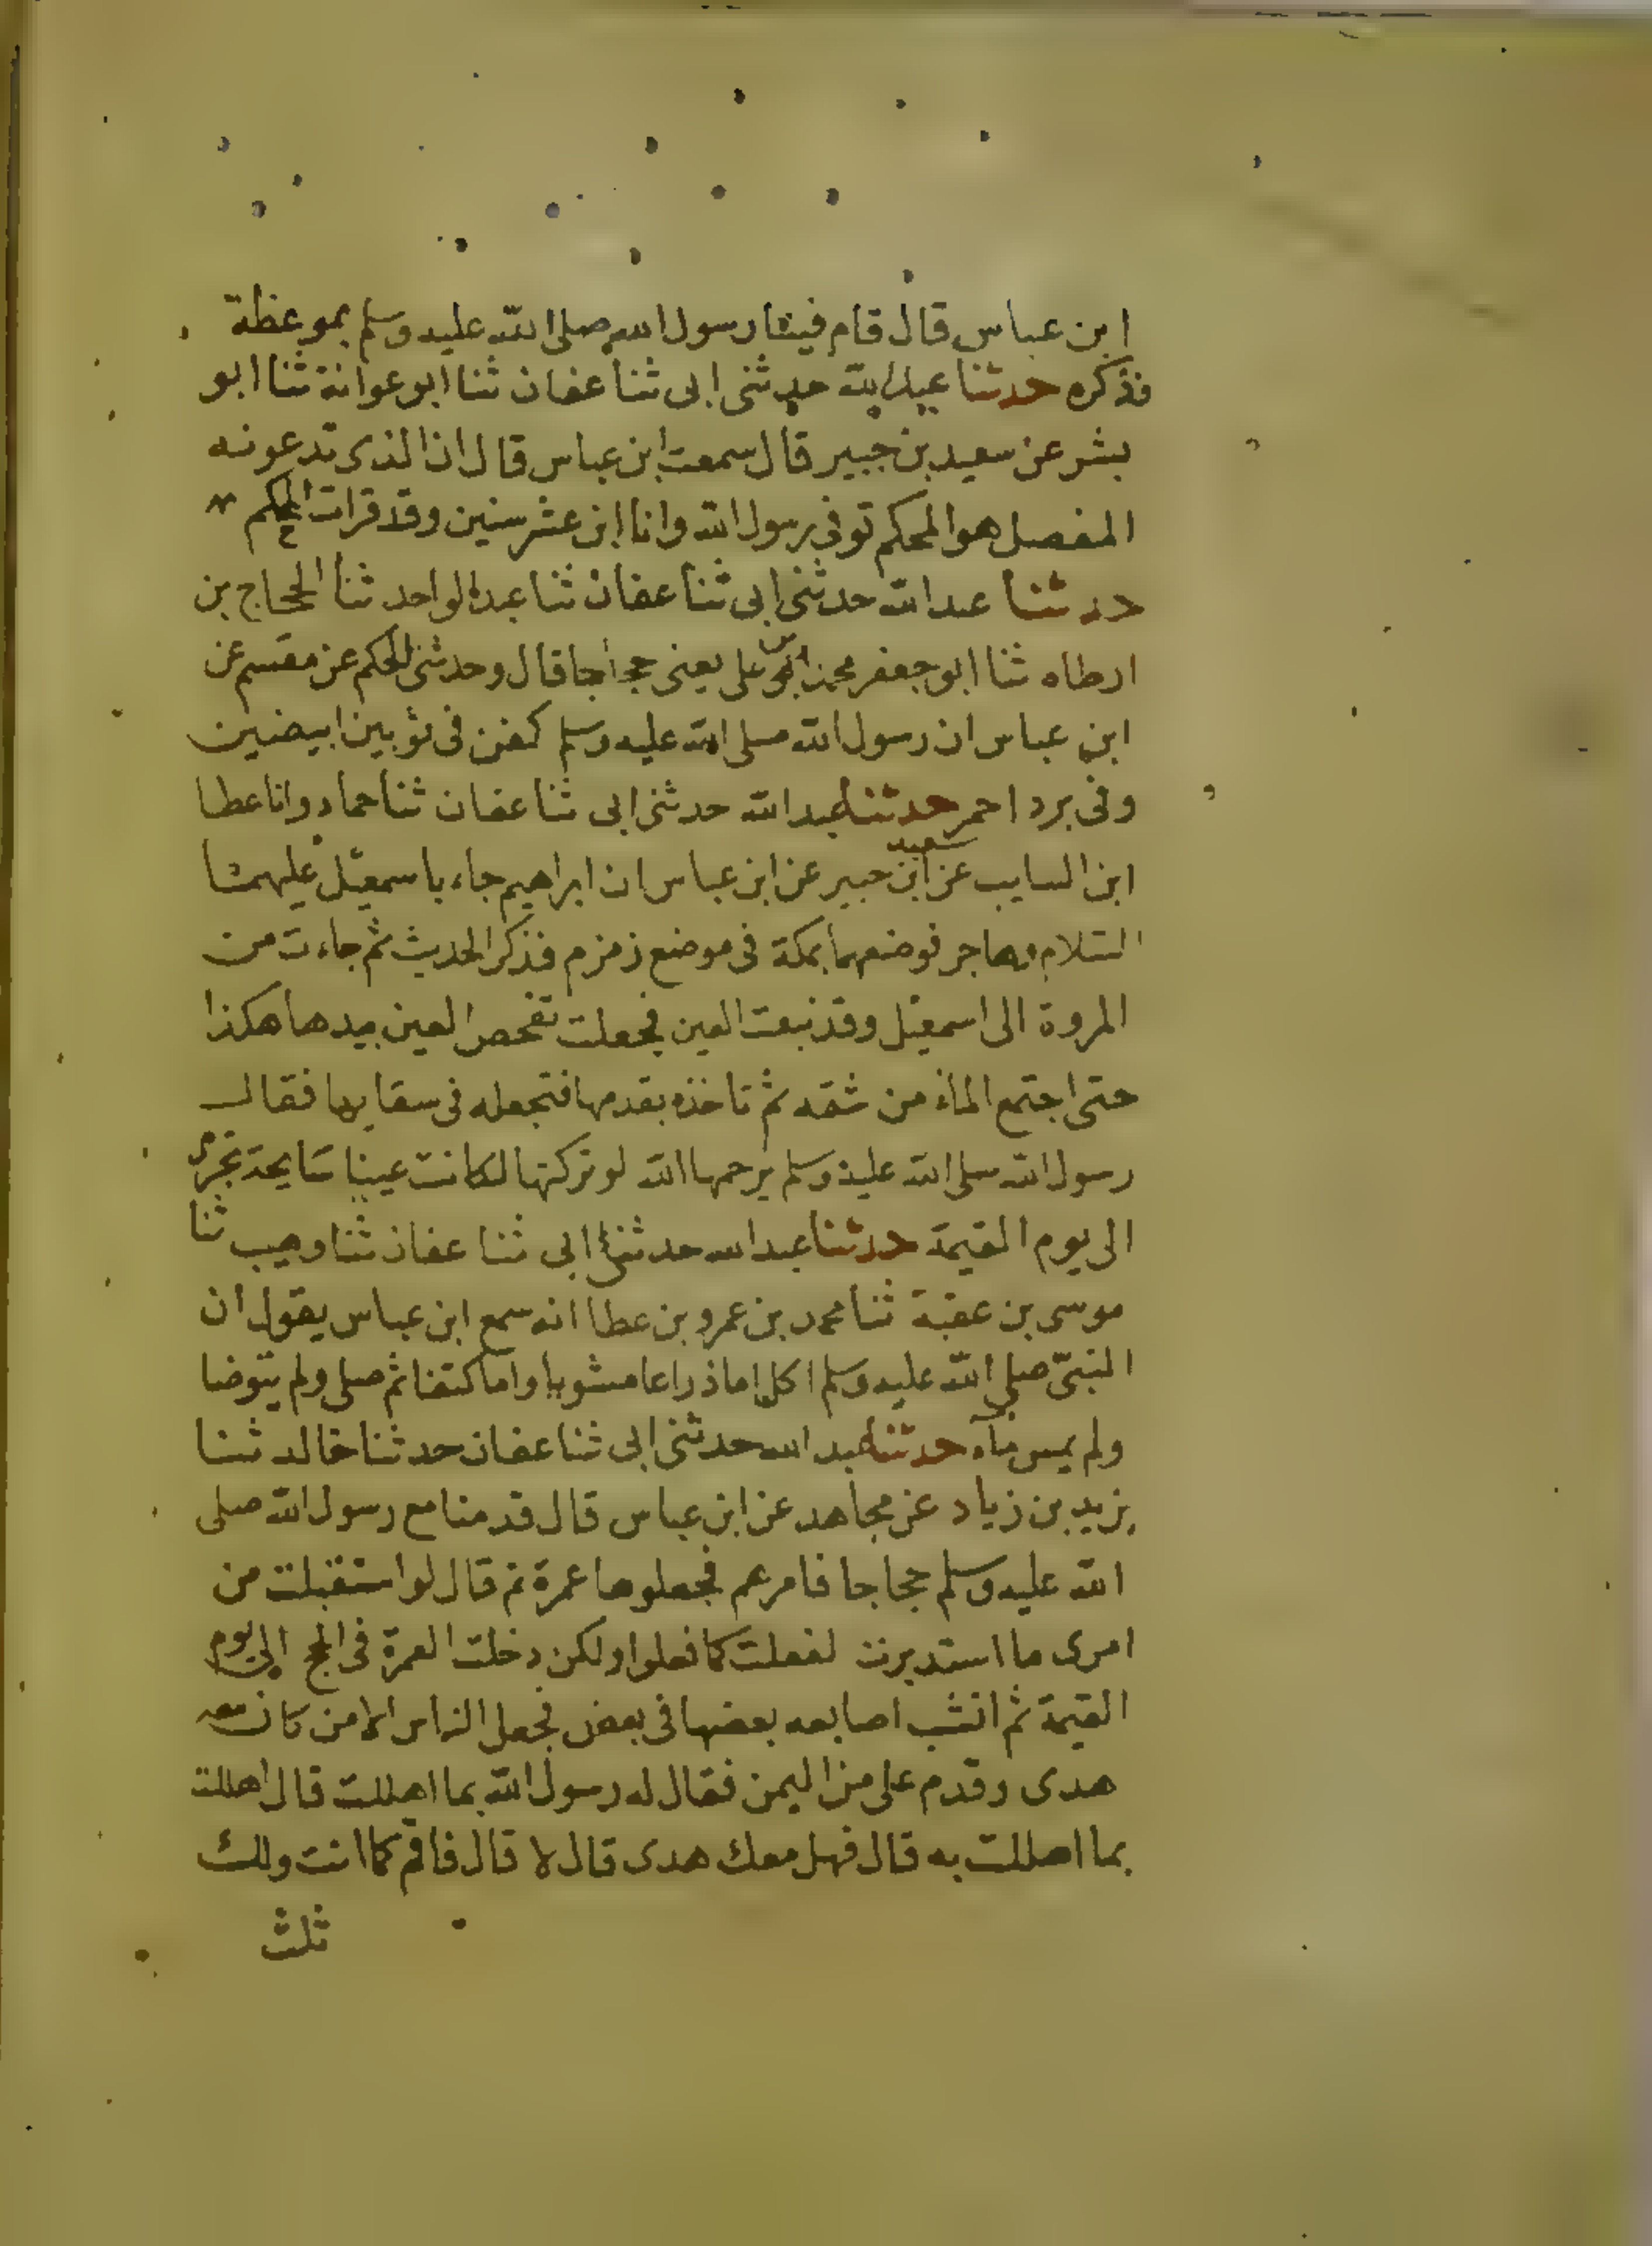 ابن عباس قال قام فينا رسول الله صلى الله عليه وسلم بموعظة
فذكره حدثنا عبدالله حدثنى ابى ثنا عفان ثنا ابو عوانة ثنا ابو
بشر عن سعيد بن جبير قال سمعت ابن عباس قال ان الذى تدعونه
المفصل هو المحكم توفى رسول الله وانا ابن عشر سنين وقد قرات المحكم
حدثنا عبدالله حدثنى ابى ثنا عفان ثنا عبدالواحد ثنا الحجاج بن
ارطاه ثنا ابو جعفر محمد بن على يعنى حجاجا قال وحدثنى الحكم عن مقسم عن
ابن عباس ان رسول الله صلى الله عليه وسلم كفن فى ثوبين ابيضين
وفى برد احمر حدثنا عبدالله حدثنى ابى ثنا عفان ثنا حماد وانا عطا
ابن السايب عن سعيد بن جبير عن ابن عباس ان ابراهيم جاء باسمعيل عليهما
السلام وهاجر فوضعهما بمكة فى موضع زمزم فذكر الحديث ثم جاءت من
المروة الى اسمعيل وقد نبعت العين فجعلت تفحص العين بيدها هكذا
حتى اجتمع الماء من شقه ثم تاخذه بقدمها فتجعله فى سقايها فقال
رسول الله صلى الله عليه وسلم يرحمها الله لو تركتها لكانت عينا سايحة تجرى
الى يوم القيمة حدثنا عبدالله حدثنى ابى ثنا عفان ثنا وهيب ثنا
موسى بن عقبة ثنا محمد بن عمرو بن عطا انه سمع ابن عباس يقول ان
النبىّ صلى الله عليه وسلم اكل اما ذراعا مشويا واما كتفا ثم صلى ولم يتوضا
ولم يمس مآء حدثنا عبدالله حدثنى ابى ثنا عفان حدثنا خالد ثنا
يزيد بن زياد عن مجاهد عن ابن عباس قال قدمنا مع رسول الله صلى
الله عليه وسلم حجاجا فامرهم فجعلوها عمرة ثم قال لو استقبلت من
امرى ما استدبرت لفعلت كما فعلوا ولكن دخلت العمرة فى الحج الى يوم
القيمة ثم انشب اصابعه بعضها فى بعض فحل الناس الا من كان معه
هدى وقدم على من اليمن فقال له رسول الله بما اهللت قال اهللت
بما اهللت به قال فهل معك هدى قال لا قال فاقم كما انت ولك
ثلث